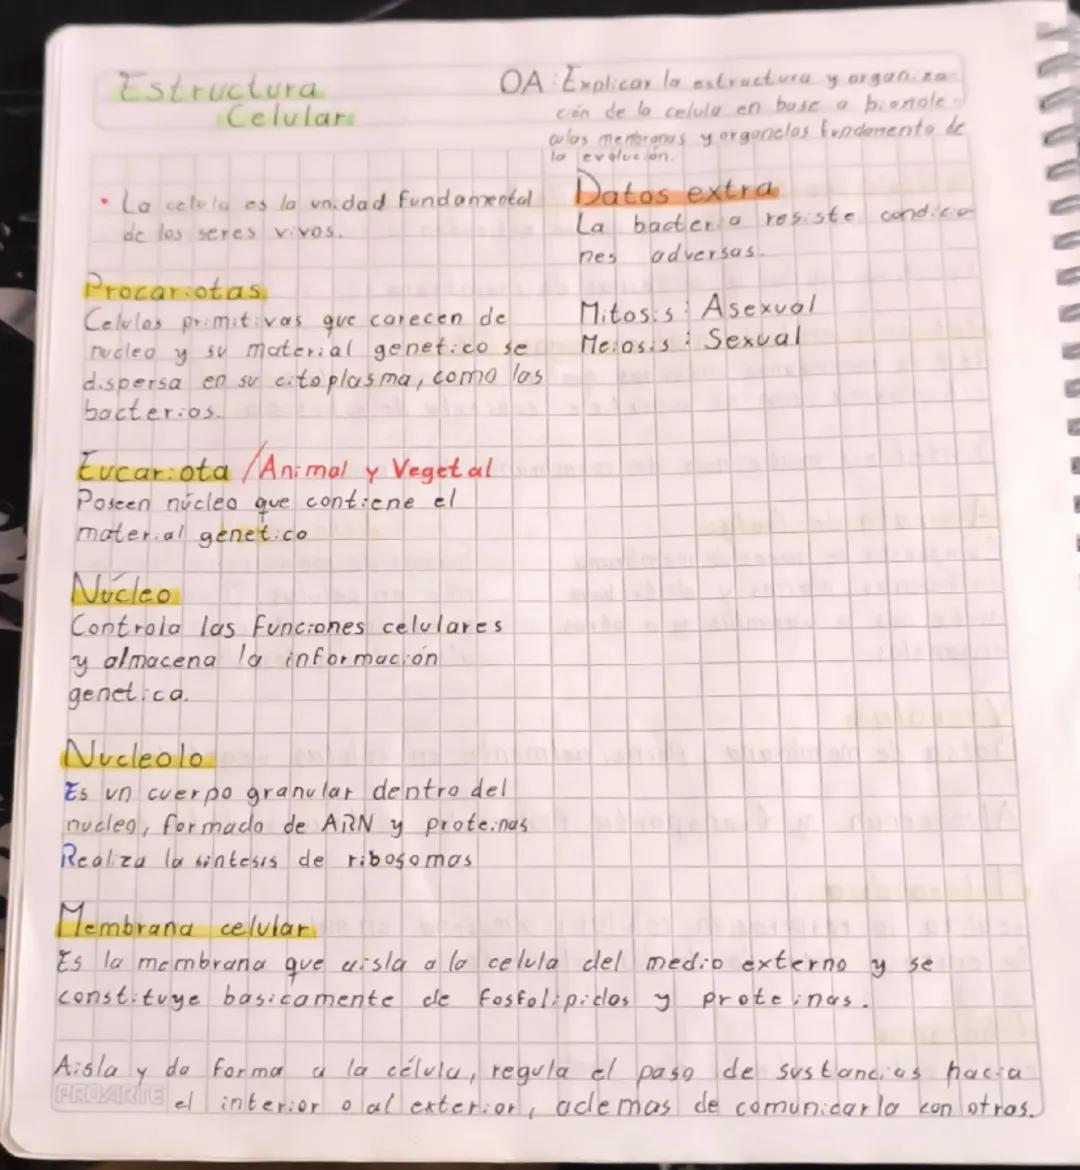 Estructura
Celular
OA: Explicar la estructura y organiza-
ción de la celula en base a biomole-
culas membranas y organelos fundamento de
la evolución.
• La celula es la unidad fundamental
de los seres vivos.
Datos extra
La bacteria resiste condicio
nes adversas.
Mitosis: Asexual
Meiosis: Sexual
Procariotas
Celulas primitivas que carecen de
nucleo y su material genetico se
dispersa en su citoplasma, como las
bacterias.
Eucariota /Animal y Vegetal
Poseen núcleo que contiene el
material génetico
Núcleo
Controla las funciones celulares
y almacena la información
genetica.
Nucleolo
Es un cuerpo granular dentro del
nucleo, formado de ARN y proteinas
Realiza la sintesis de ribosomas
Membrana celular
Es la membrana que aisla a la celula del medio externo y se
constituye basicamente de fosfolipidos y proteinas.
Aisla y da forma a la célula, regula el paso de sustancias hacia
PROARTE
el interior o al exterior, ademas de comunicarla con otras.